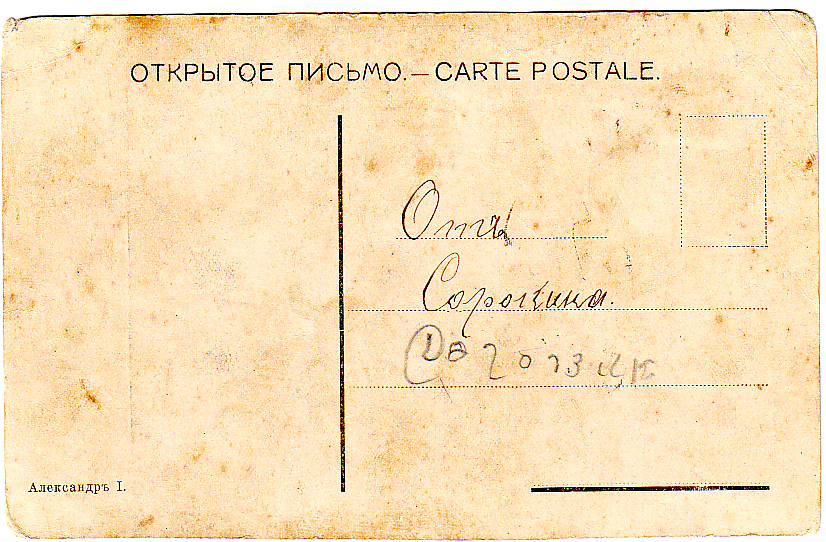 ОТКРЫТОЕ ПИСЬМО.— CARTE POSTALE.
Отъ
Сорокина.
Александръ I.